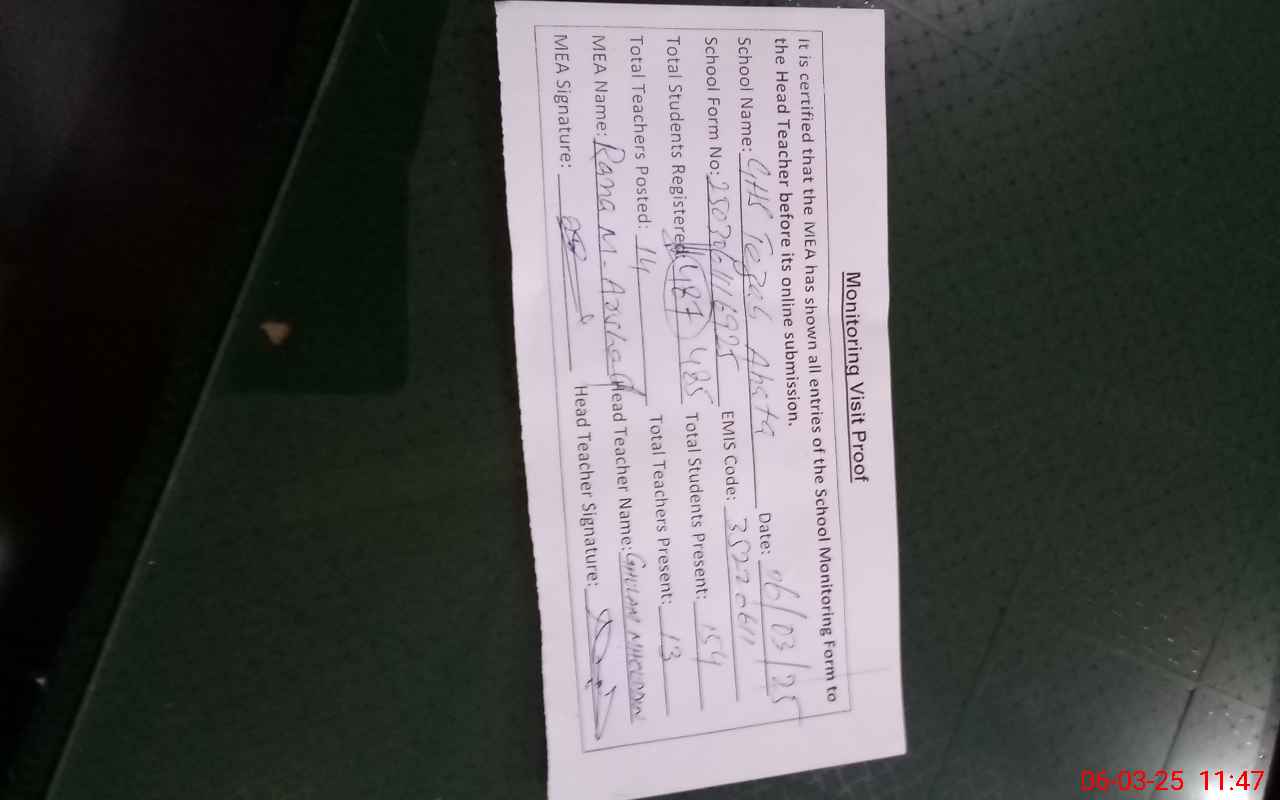 Monitoring Visit Proof
It is certified that the MEA has shown all entries of the School Monitoring Form to
the Head Teacher before its online submission.
School Name: GHS Ahata Date: 06/03/25
School Form No: EMIS Code:
Total Students Registered: 487 485 Total Students Present: 154
Total Teachers Posted: 14 Total Teachers Present: 13
MEA Name: Rana M. Arshad Head Teacher Name: GHULAM
MEA Signature: Head Teacher Signature:
06-03-25 11:47